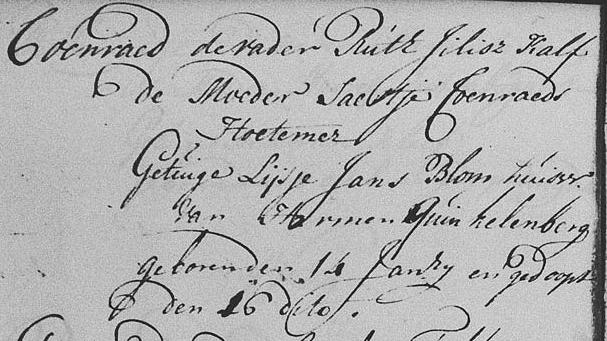 Coenraed de vader Rutz Jilisz Kalf
de Moeder Saertje Coenraeds
Hoetemer
Getuige Lijsje Jans Blom huisvr.
van Harmen Quinkelenberg
geboren den 14 Janry en gedoopt
den 16 dito.